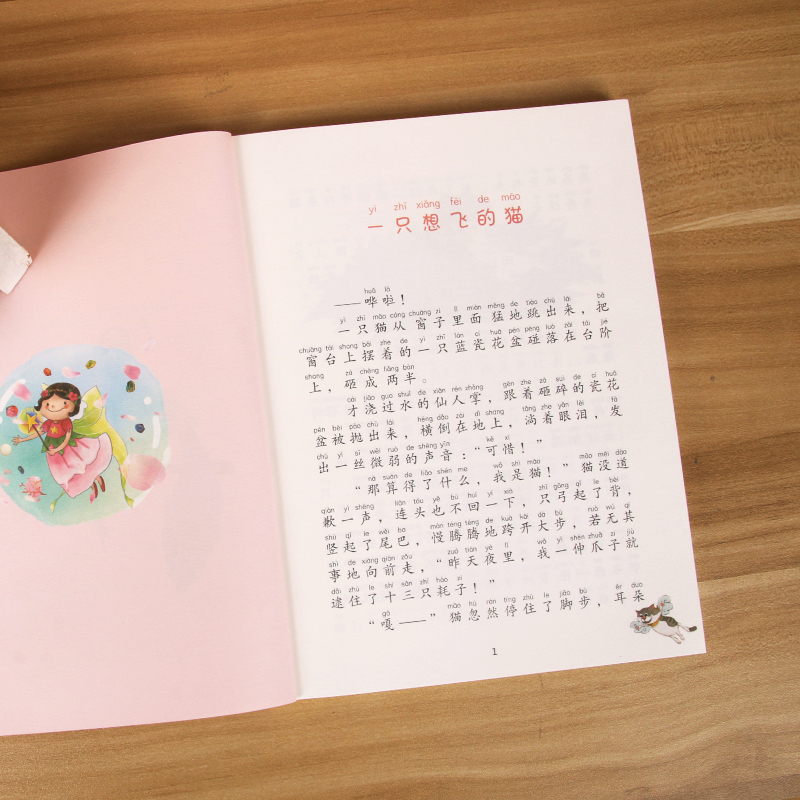 yì zhī xiǎng fēi de māo
一只想飞的猫
huā lā
——哗啦！
yì zhī māo cóng chuāng zi lǐ miàn měng de tiào chū lái bǎ
一只猫从窗子里面猛地跳出来，把
chuāng tái shang bǎi zhe de yì zhī lán cí huā pén pèng luò zài tái jiē
窗台上摆着的一只蓝瓷花盆碰落在台阶
shang zá chéng liǎng bàn
上，砸成两半。
cái jiāo guo shuǐ de xiān rén zhǎng gēn zhe zá suì de cí huā
才浇过水的仙人掌，跟着砸碎的瓷花
pén bèi pāo chū lái héng dǎo zài dì shang tǎng zhe yǎn lèi fā
盆被抛出来，横倒在地上，淌着眼泪，发
chū yì sī wēi ruò de shēng yīn kě xī
出一丝微弱的声音：“可惜！”
nà suàn de liǎo shén me wǒ shì māo māo méi dào
“那算得了什么，我是猫！”猫没道
qiàn yì shēng lián tóu yě bù huí yí xià zhǐ gōng qǐ le bèi
歉一声，连头也不回一下，只弓起了背，
shù qǐ le wěi ba màn tēng tēng de kuà kāi dà bù ruò wú qí
竖起了尾巴，慢腾腾地跨开大步，若无其
shì de xiàng qián zǒu zuó tiān yè lǐ wǒ yì shēn zhuǎ zi jiù
事地向前走，“昨天夜里，我一伸爪子就
dǎi zhù le shí sān zhī hào zi
逮住了十三只耗子！”
gā māo hū rán tíng zhù le jiǎo bù ěr duo
“嘎——”猫忽然停住了脚步，耳朵
1